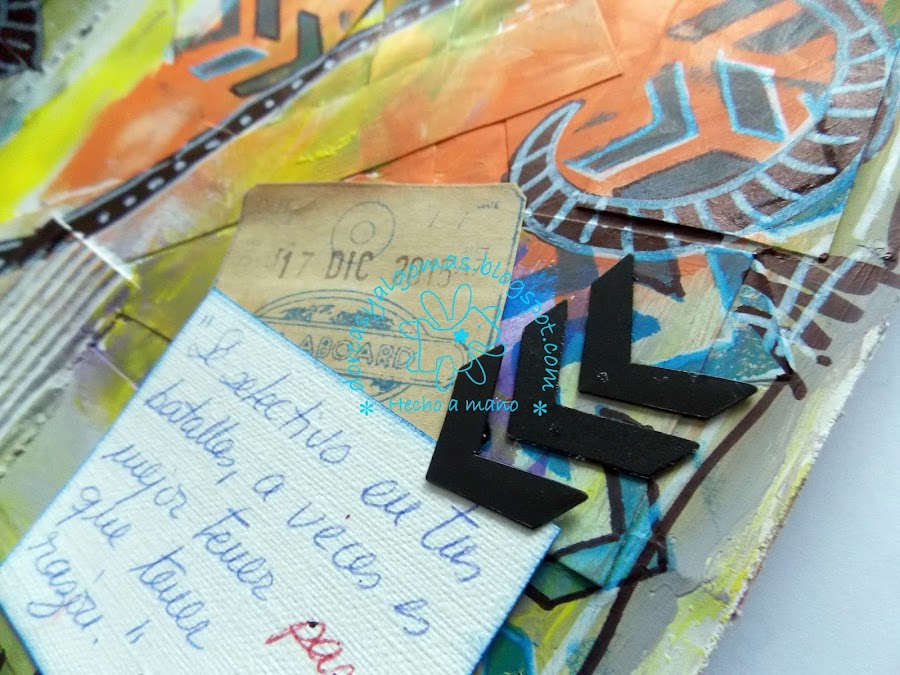 17 DIC 20
ABOARD
yalgomas.blogspot.com
* Hecho a mano *
"Selectivo en tus
batallas, a veces es
mejor tener paz
que tener
razón."